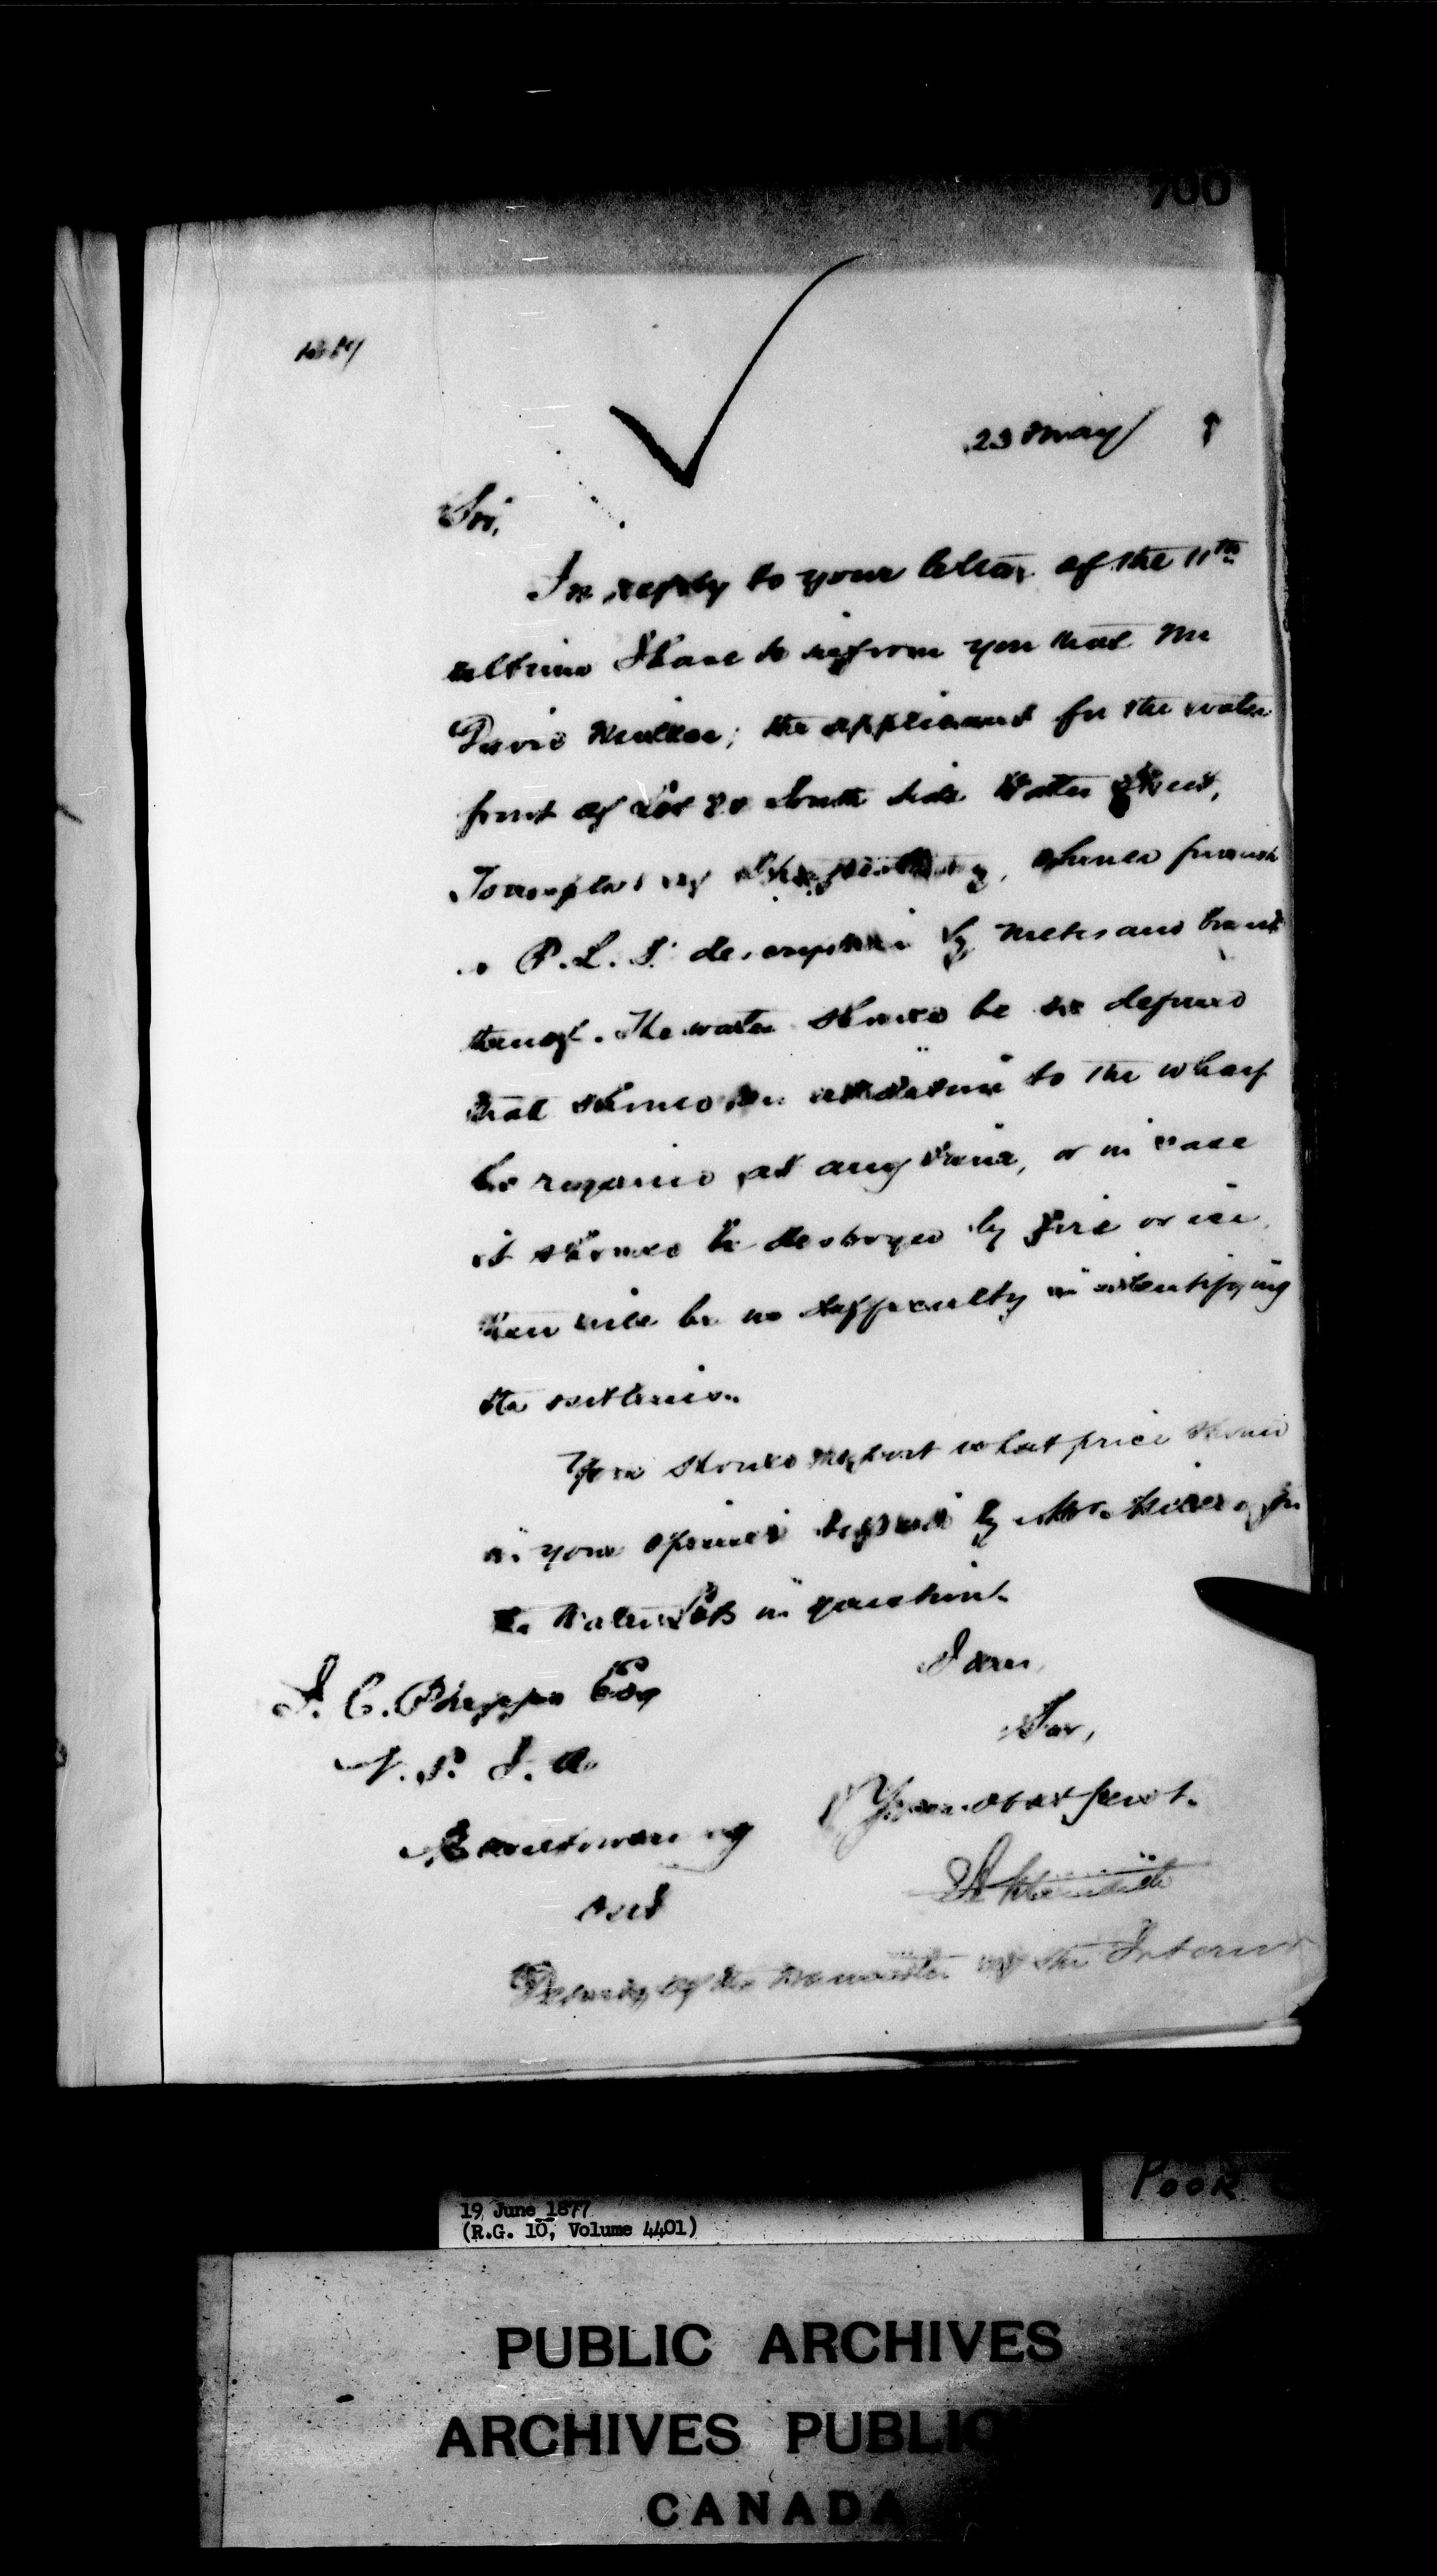 700
23 May
Sir,
In reply to your letter of the 11th
ultimo I have to inform you that Mr
David; the applicant for the water
front of Lot South side Water Street,
Township of, should furnish
a P.L.S. description by metes and bounds
thereof. The water should be so defined
that should an addition to the wharf
be required at any time, or in case
it should be destroyed by fire or ice,
there will be no difficulty in identifying
its outlines.
You should report what price should
in your opinion by Mr. for
the Water Lots in question.
I am,
Sir,
J. C. Phipps Esq
V. S. I. A.
Your obdt Servt.
Manitowaning
Ont
Deputy of the Minister of the Interior
19 June 1877
(R.G. 10, Volume 4401)
POOR
PUBLIC ARCHIVES
ARCHIVES PUBLIQ
CANADA